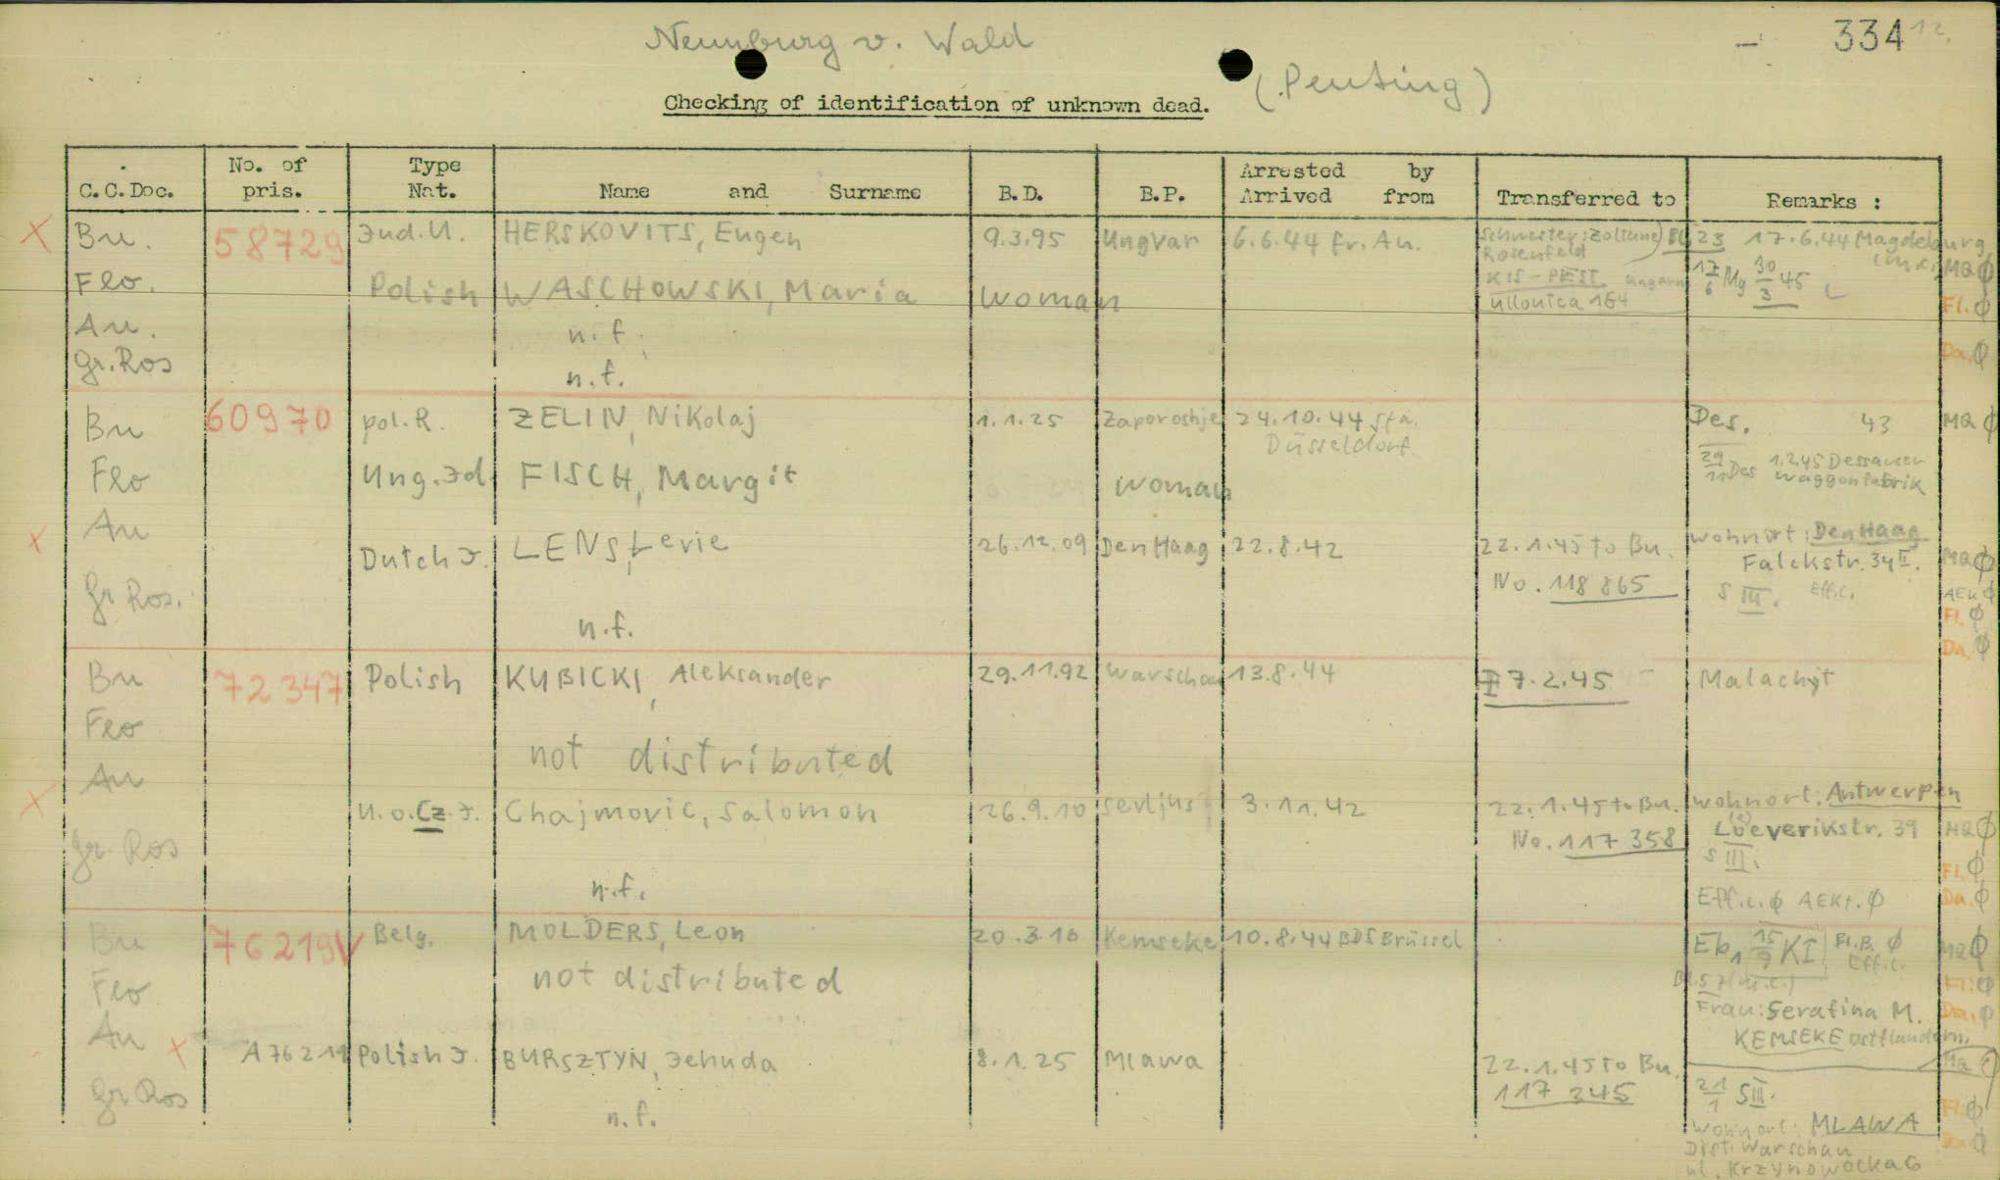 Neunburg v. Wald
334 12.
(Penting)
Checking of identification of unknown dead.
C.C.Doc. No. of pris. Type Nat. Name and Surname B.D. B.P. Arrested by Arrived from Transferred to Remarks :
Bu. 58729 Jud.U. HERSKOVITS, Eugen 9.3.95 Ungvar 6.6.44 fr. Au. Schwester: Zoltune) Bl. 23 17.6.44 Magdeburg
Rosenfeld MQ Ø
KIS-PEST. Ungarn 17/6 Mg 30/3 45
Flo. Polish WASCHOWSKI, Maria woman Ullonica 164 Fl. Ø
Au. n.f.
Da. Ø
Gr.Ros n.f.
Bu 60970 pol.R. ZELIN, Nikolaj 1.1.25 Zaporoshje 24.10.44 Sta. Düsseldorf Des. 43 MQ Ø
29/11 Des 1.2.45 Dessauer Waggonfabrik
Flo Ung.Jd. FISCH, Margit woman
Au Dutch J. LENS, Levie 26.12.09 Den Haag 22.8.42 22.1.45 to Bu. Wohnort: Den Haag
No. 118 865 Falckstr. 34 II. MQ Ø
S III. Eff.c. AEK Ø
Fl. Ø
Gr Ros. n.f.
Da. Ø
Bu 72347 Polish KUBICKI, Aleksander 29.11.92 Warschau 13.8.44 7.2.45 Malachyt
Flo not distributed
Au U.o.Cz.J. Chajmovic, Salomon 26.9.10 Sevljus 3.11.42 22.1.45 to Bu. Wohnort: Antwerpen
No. 117 358 Loeverikstr. 39 MQ Ø
S III. Fl. Ø
Gr. Ros n.f. Eff.c. Ø AEKt. Ø Da. Ø
Bu 76219 V Belg. MOLDERS, Leon 20.3.10 Kemseke 10.8.44 BDS Brüssel Eb, 15/9 KI Fl.B. Ø Eff.c. MQ Ø
Flo not distributed Fl. Ø
Frau: Serafina M. Da. Ø
KEMSEKE ostflandern.
Au A 76219 Polish J. BURSZTYN, Jehuda 8.1.25 Mlawa 22.1.45 to Bu. Ma Ø
117 345 21/1 S III. Fl. Ø
Gr Ros n.f. Wohnort: MLAWA Da Ø
Dist. Warschau
ul. Krzynowocka 6